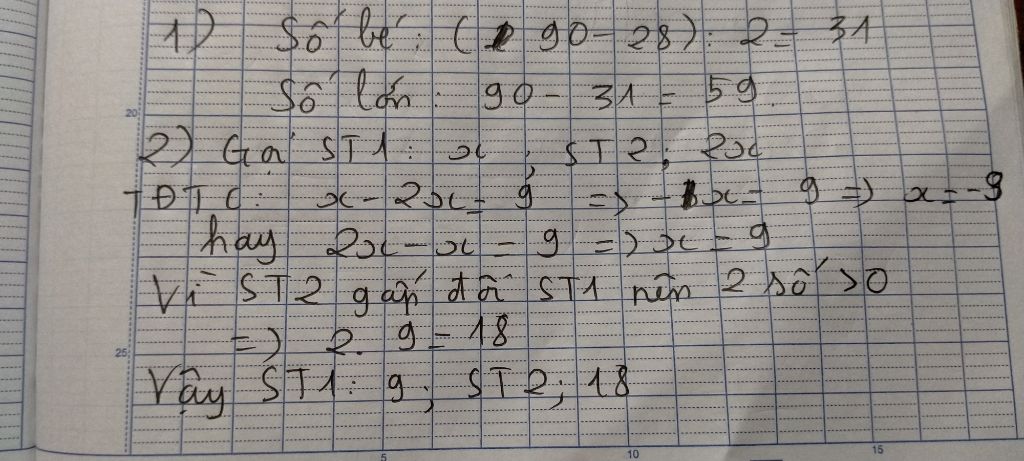 1) Số bé: (90-28): 2= 31
Số lớn: 90 - 31 = 59.
20
2) Gọi ST1: x ; ST2; 2x
TĐTC: x - 2x = 9 => -1x = 9 => x = -9
hay 2x - x = 9 => x = 9
Vì ST2 gấp đôi ST1 nên 2 số >0
=> 2. 9 = 18
25
Vậy ST1: 9; ST2; 18
5 10 15